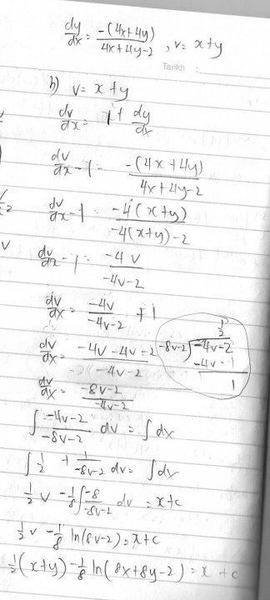 dy/dx = -(4x+4y)/4x+4y-2 , v = x+y
Tarikh :
b) v = x+y
dv/dx = 1 + dy/dx
dv/dx - 1 = -(4x+4y)/4x+4y-2
dv/dx - 1 = -4(x+y)/-4(x+y)-2
dv/dx - 1 = -4v/-4v-2
dv/dx = -4v/-4v-2 + 1
dv/dx = -4v-4v-2/-4v-2
dv/dx = -8v-2/-4v-2
1/2
-8v-2 ) -4v-2
-4v-1
1
∫ -4v-2/-8v-2 dv = ∫dx
∫ 1/2 + 1/-8v-2 dv = ∫dx
1/2 v - 1/8 ∫ -8/-8v-2 dv = x+c
1/2 v - 1/8 ln(8v-2) = x+c
1/2 (x+y) - 1/8 ln(8x+8y-2) = x + c